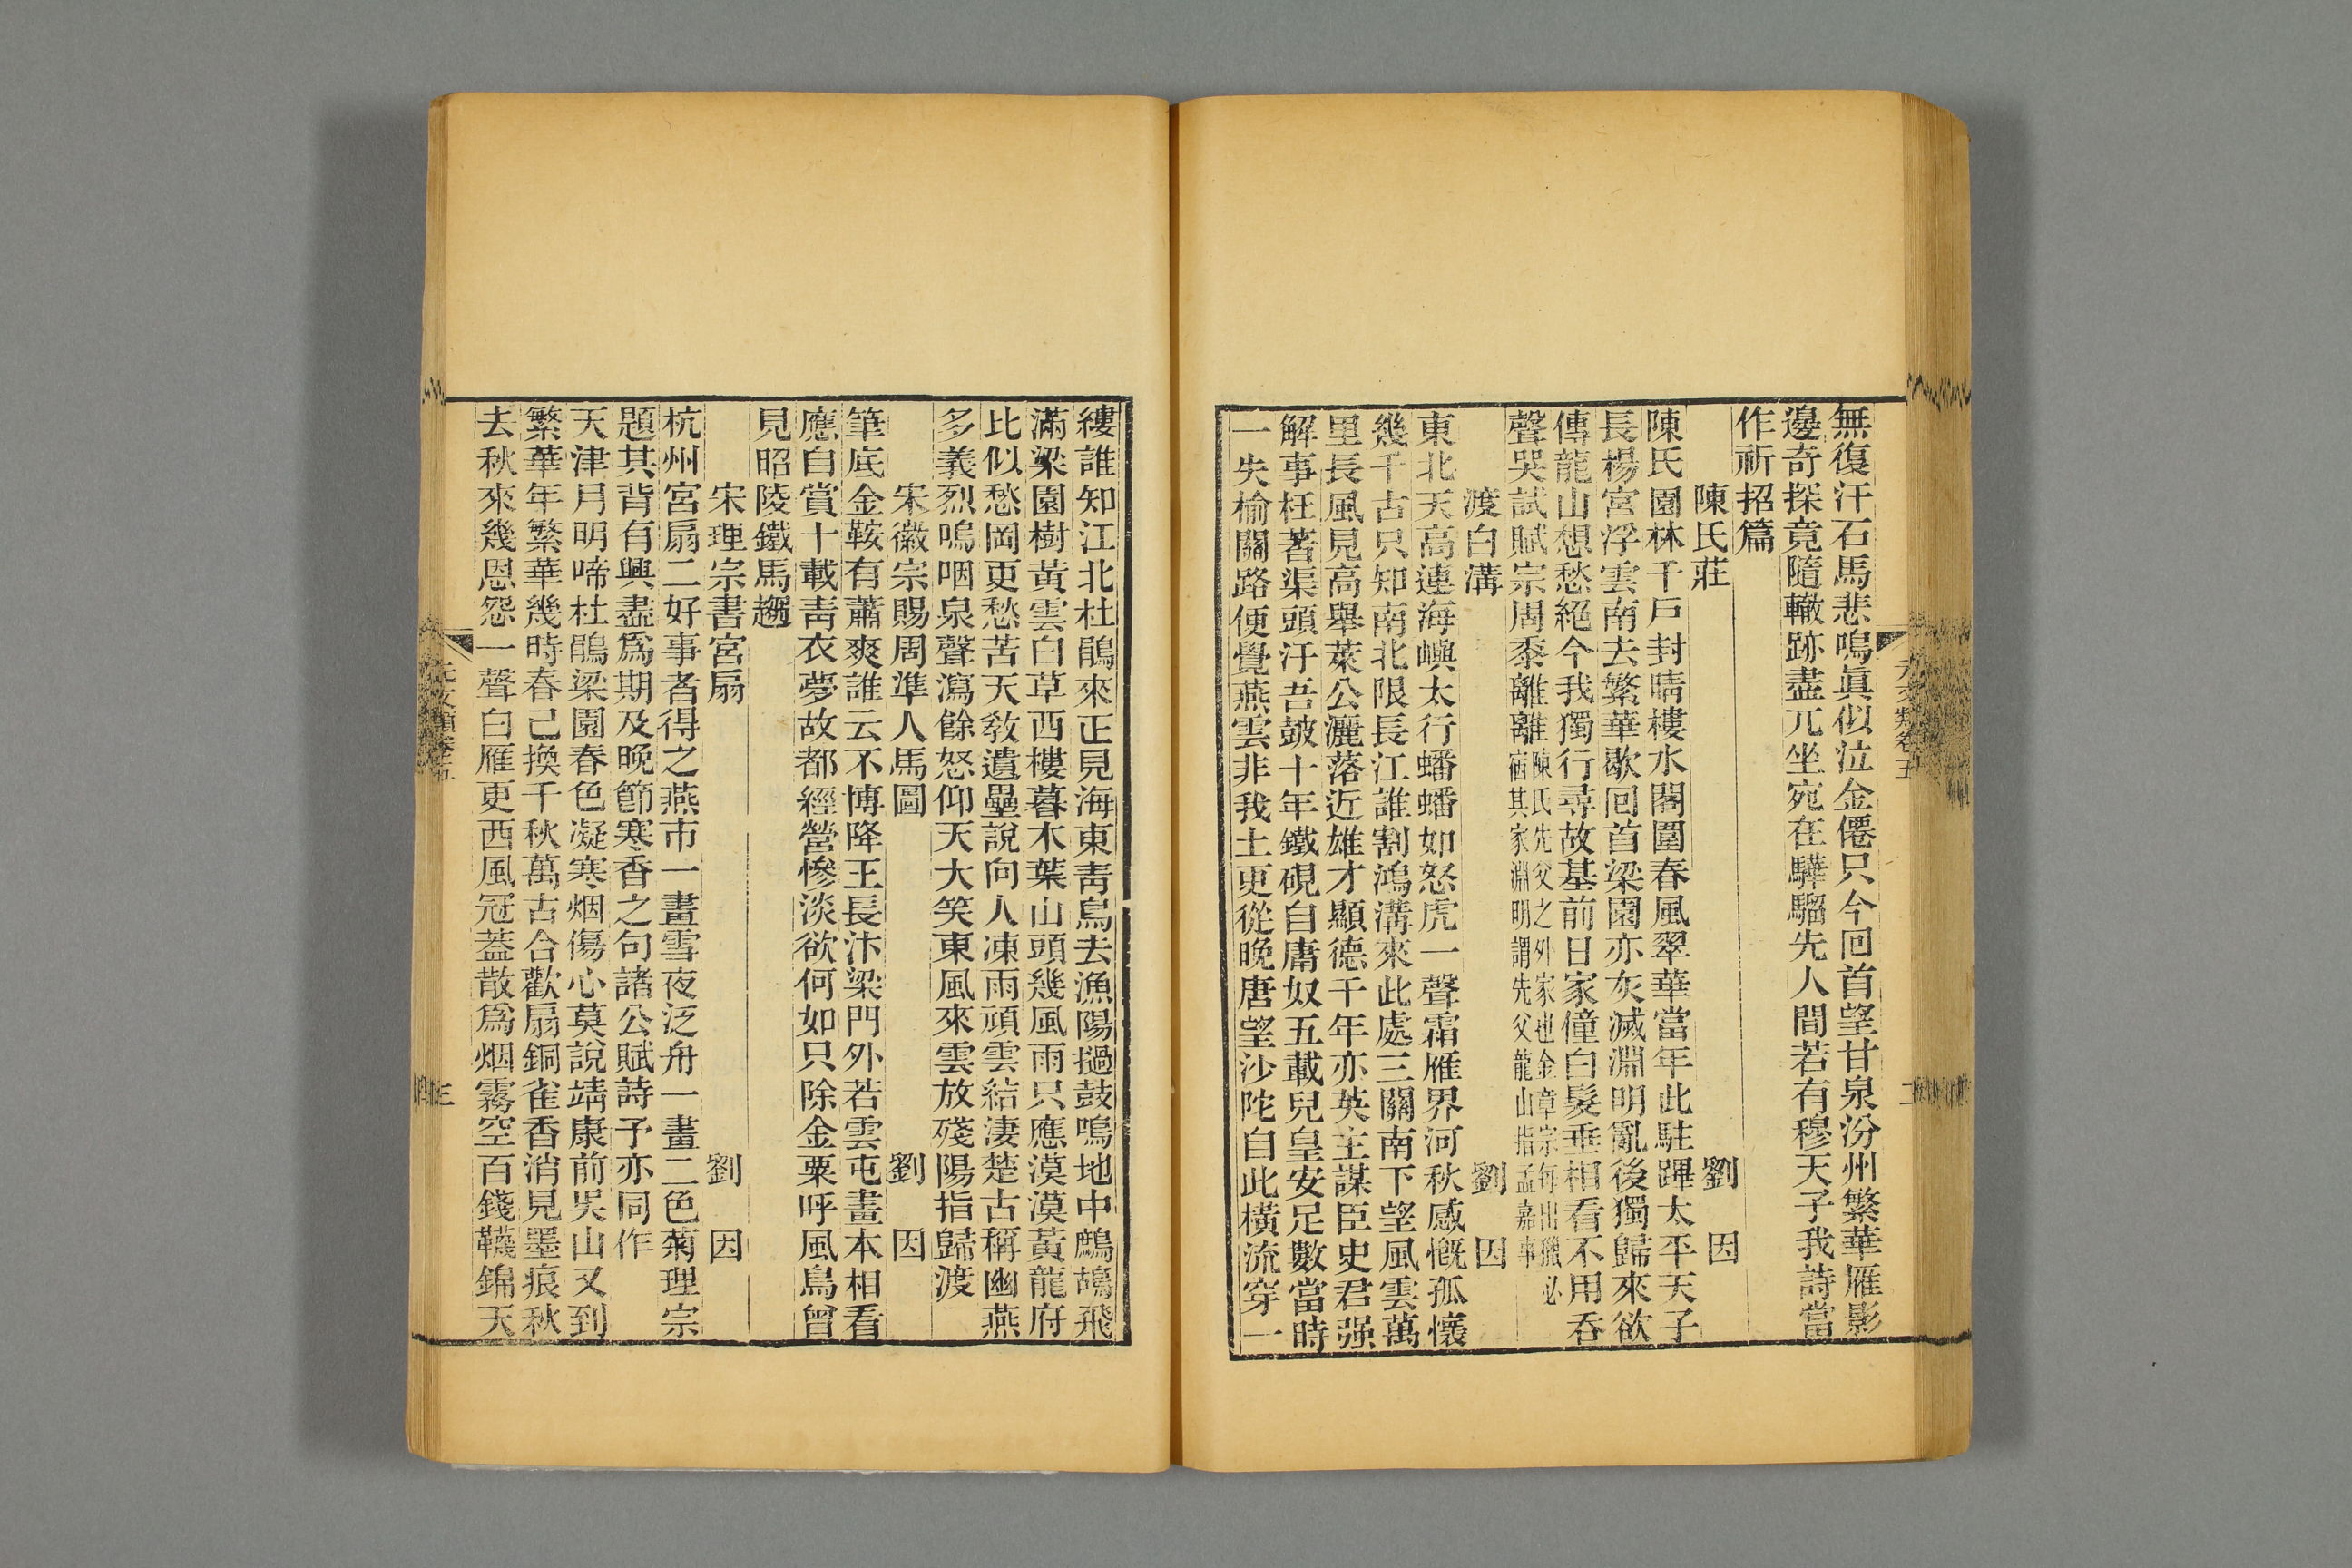 無復汗石馬悲鳴眞似泣金僊只今囘首望甘泉汾州繁華雁影
邊奇探竟隨轍跡盡兀坐宛在驊騮先人間若有穆天子我詩當
作祈招篇
陳氏莊 劉 因
陳氏園林千戸封晴樓水閣圍春風翠華當年此駐蹕太平天子
長楊宮浮雲南去繁華歇囘首梁園亦灰滅淵明亂後獨歸來欲
傳龍山想愁絕今我獨行尋故基前日家僮白髮垂相看不用呑
聲哭試賦宗周黍離離陳氏先父之外家也金章宗每出獵必宿其家淵明謂先父龍山指孟嘉事
渡白溝 劉 因
東北天高連海嶼太行蟠蟠如怒虎一聲霜雁界河秋感慨孤懷
幾千古只知南北限長江誰割鴻溝來此處三關南下望風雲萬
里長風見高舉萊公灑落近雄才顯德千年亦英主謀臣史君强
解事枉著渠頭汙吾皷十年鐵硯自庸奴五載兒皇安足數當時
一失榆關路便覺燕雲非我土更從晚唐望沙陀自此橫流穿一
縷誰知江北杜鵑來正見海東靑鳥去漁陽撾鼓鳴地中鷓鴣飛
滿梁園樹黃雲白草西樓暮木葉山頭幾風雨只應漠漠黃龍府
比似愁岡更愁苦天敎遺壘說向人凍雨頑雲結淒楚古稱幽燕
多義烈嗚咽泉聲瀉餘怒仰天大笑東風來雲放殘陽指歸渡
宋徽宗賜周準人馬圖 劉 因
筆底金鞍有蕭爽誰云不博降王長汴梁門外若雲屯畫本相看
應自賞十載靑衣夢故都經營慘淡欲何如只除金粟呼風鳥曾
見昭陵鐵馬趨
宋理宗書宮扇 劉 因
杭州宮扇二好事者得之燕市一畫雪夜泛舟一畫二色菊理宗
題其背有興盡爲期及晚節寒香之句諸公賦詩予亦同作
天津月明啼杜鵑梁園春色凝寒烟傷心莫說靖康前吳山又到
繁華年繁華幾時春已換千秋萬古合歡扇銅雀香消見墨痕秋
去秋來幾恩怨一聲白雁更西風冠蓋散爲烟霧空百錢韈錦天